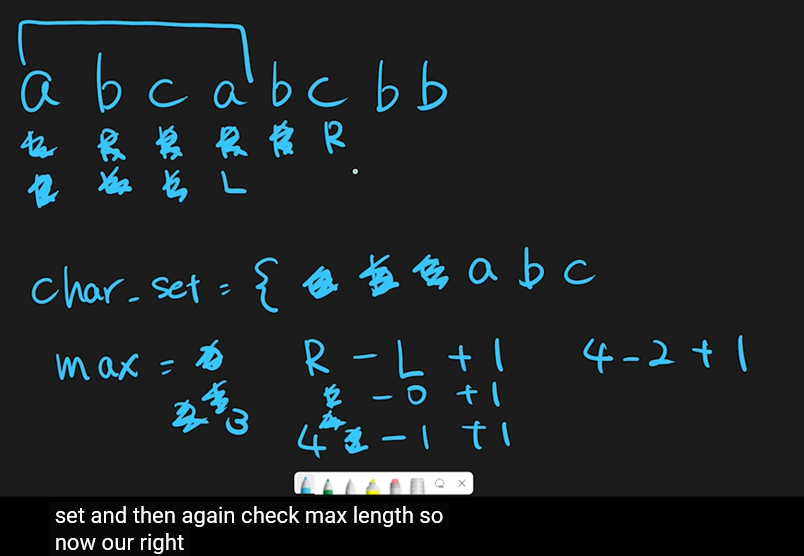 a b c a b c b b
R
L
char_set = { a b c
max = R - L + 1 4 - 2 + 1
3 - 0 + 1
4 - 1 + 1
set and then again check max length so
now our right